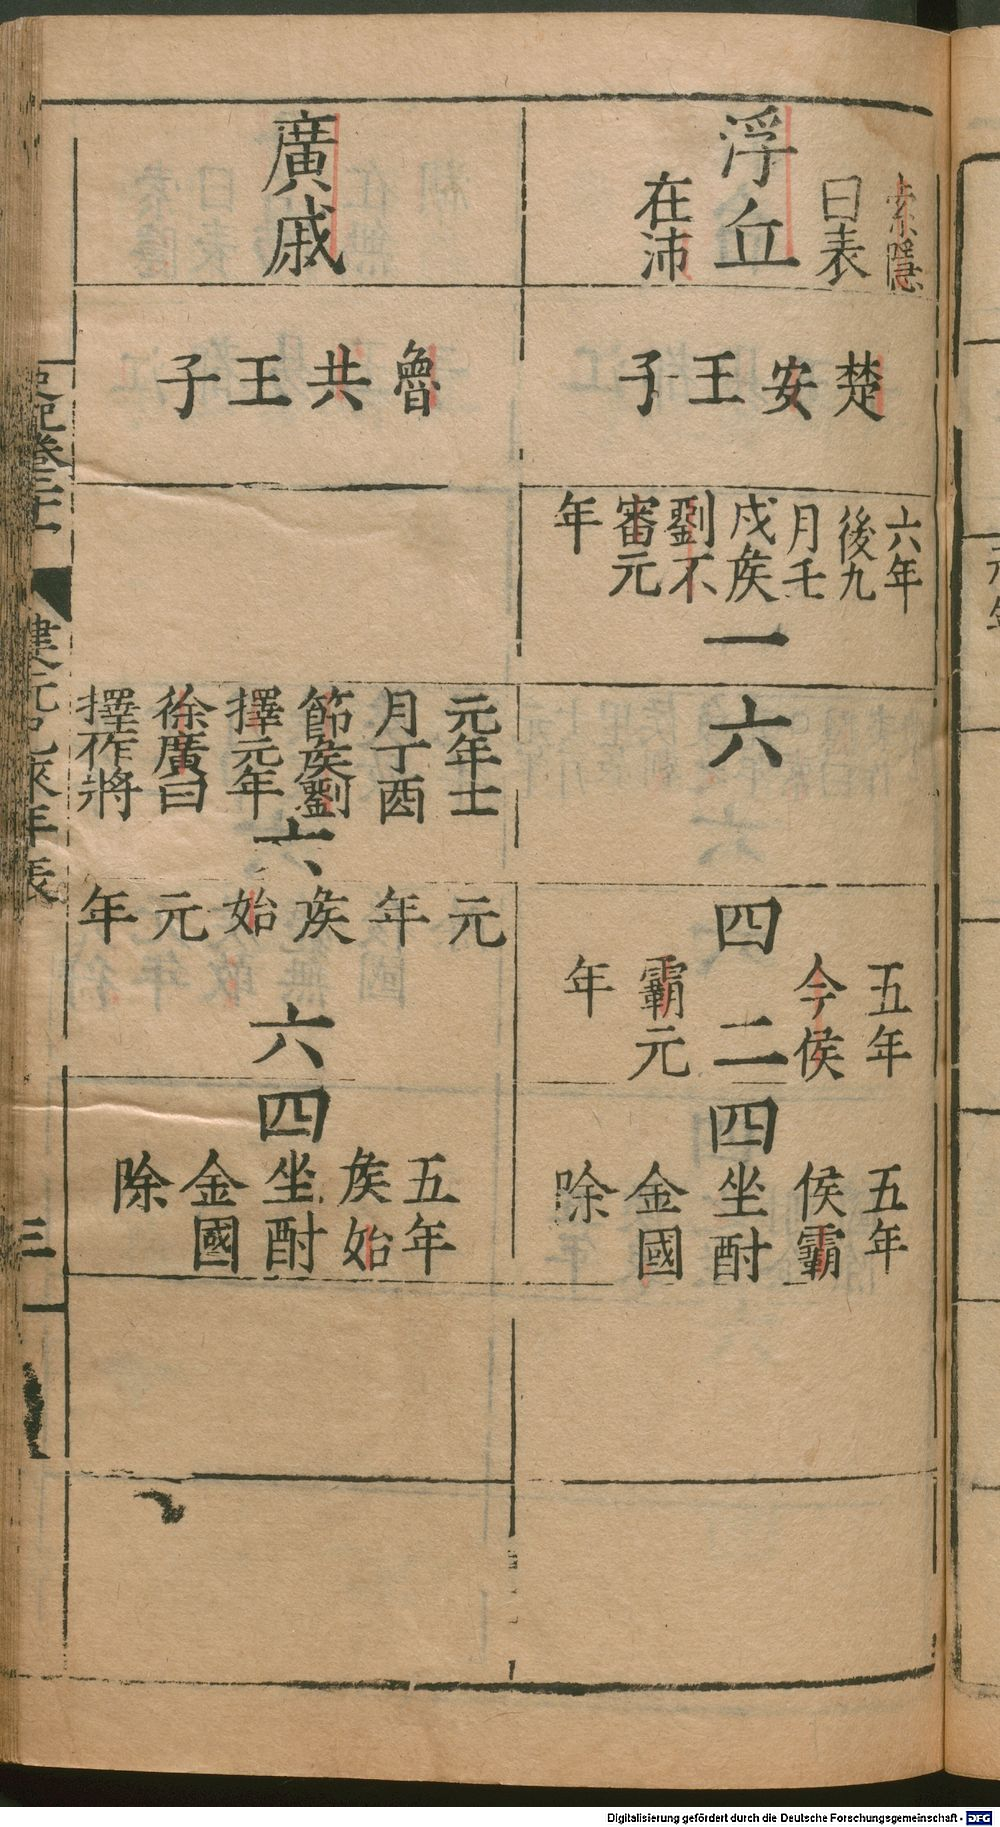 浮丘
索隱
曰表
在沛
楚安王子
六年
後九
月壬
戌矦
劉不
審元
年
一
六
四
五年
今侯
二
霸元
年
四
五年
侯霸
坐酎
金國
除
廣戚
魯共王子
元年士
月丁酉
節矦劉
擇元年
徐廣曰
擇作將
六
元年矦始元年
六
四
五年
矦始
坐酎
金國
除
建元已來年表
三
Digitalisierung gefördert durch die Deutsche Forschungsgemeinschaft - DFG